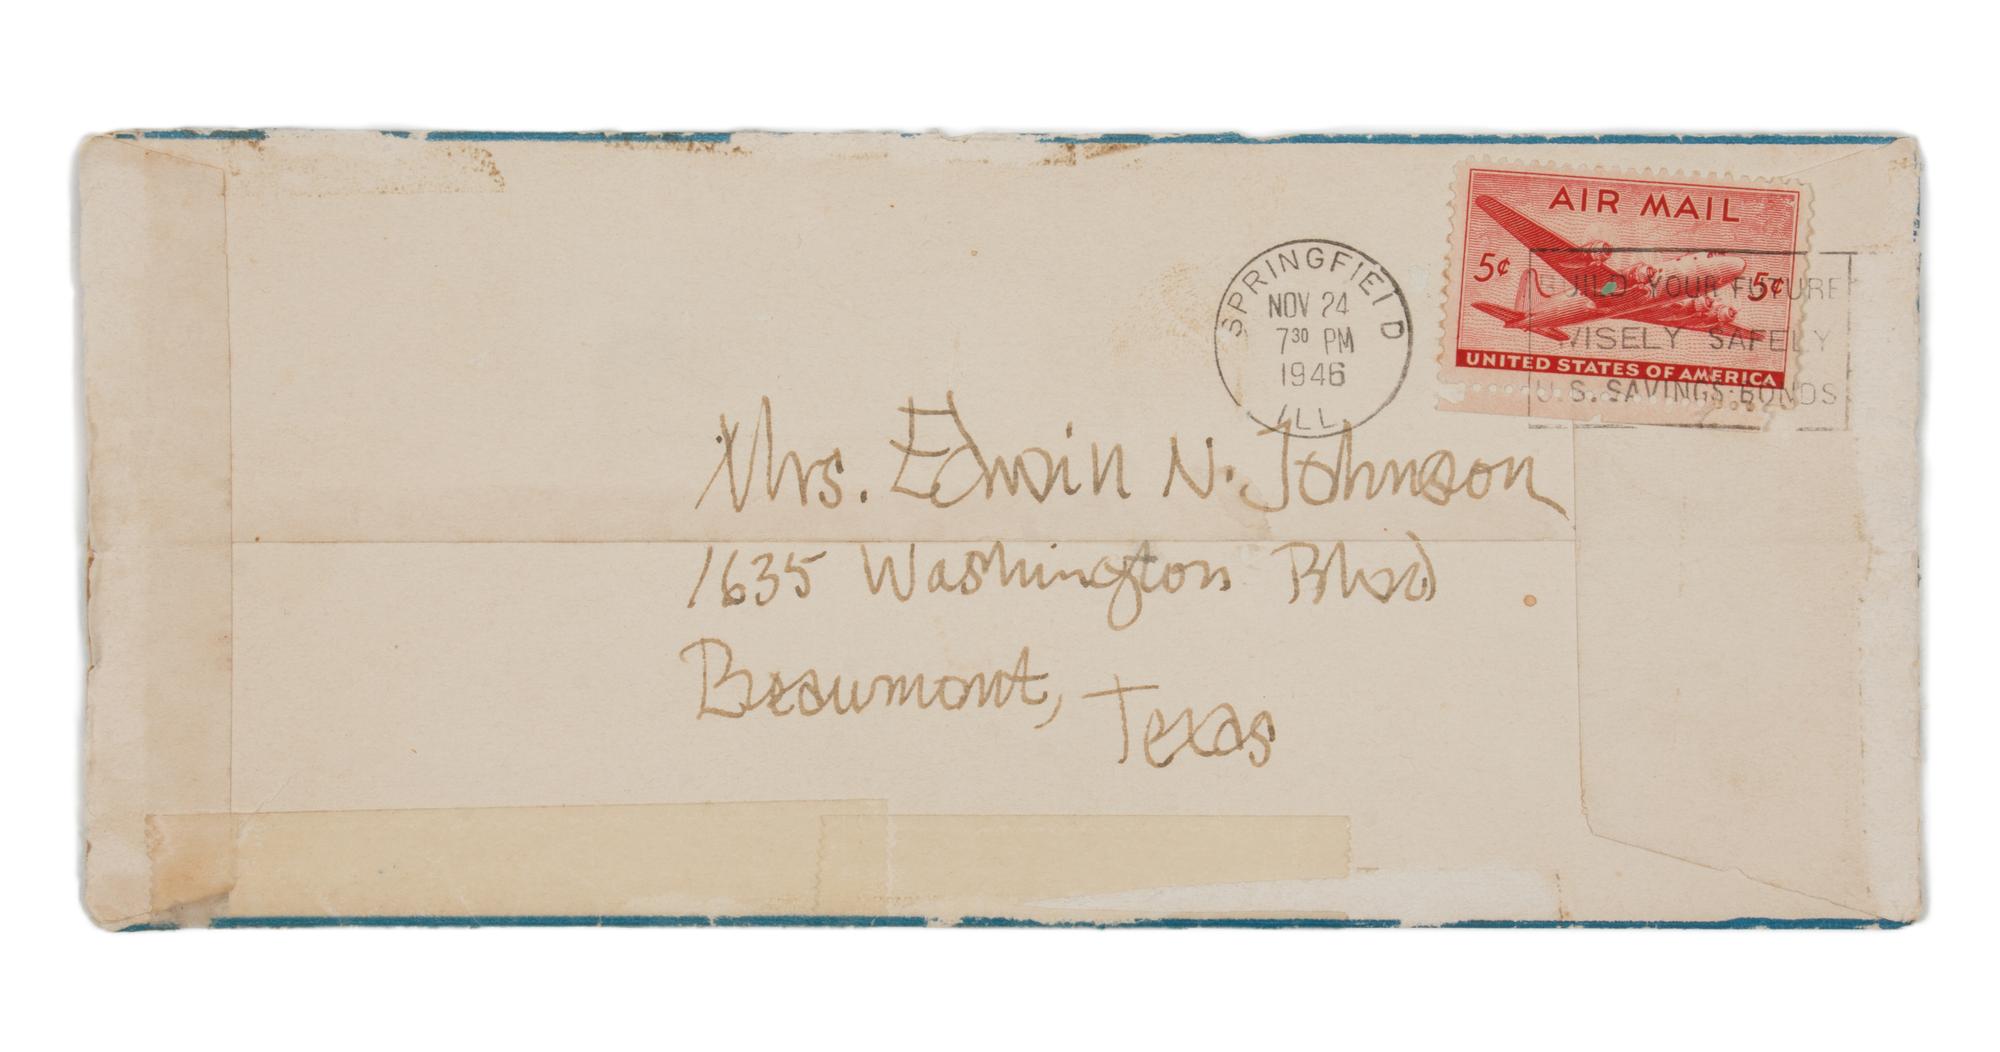 AIR MAIL
5¢ 5¢
UNITED STATES OF AMERICA
SPRINGFIELD
NOV 24
7 30 PM
1946
ILL.
BUILD YOUR FUTURE
WISELY SAFELY
U.S. SAVINGS BONDS
Mrs. Edwin N. Johnson
1635 Washington Blvd
Beaumont, Texas